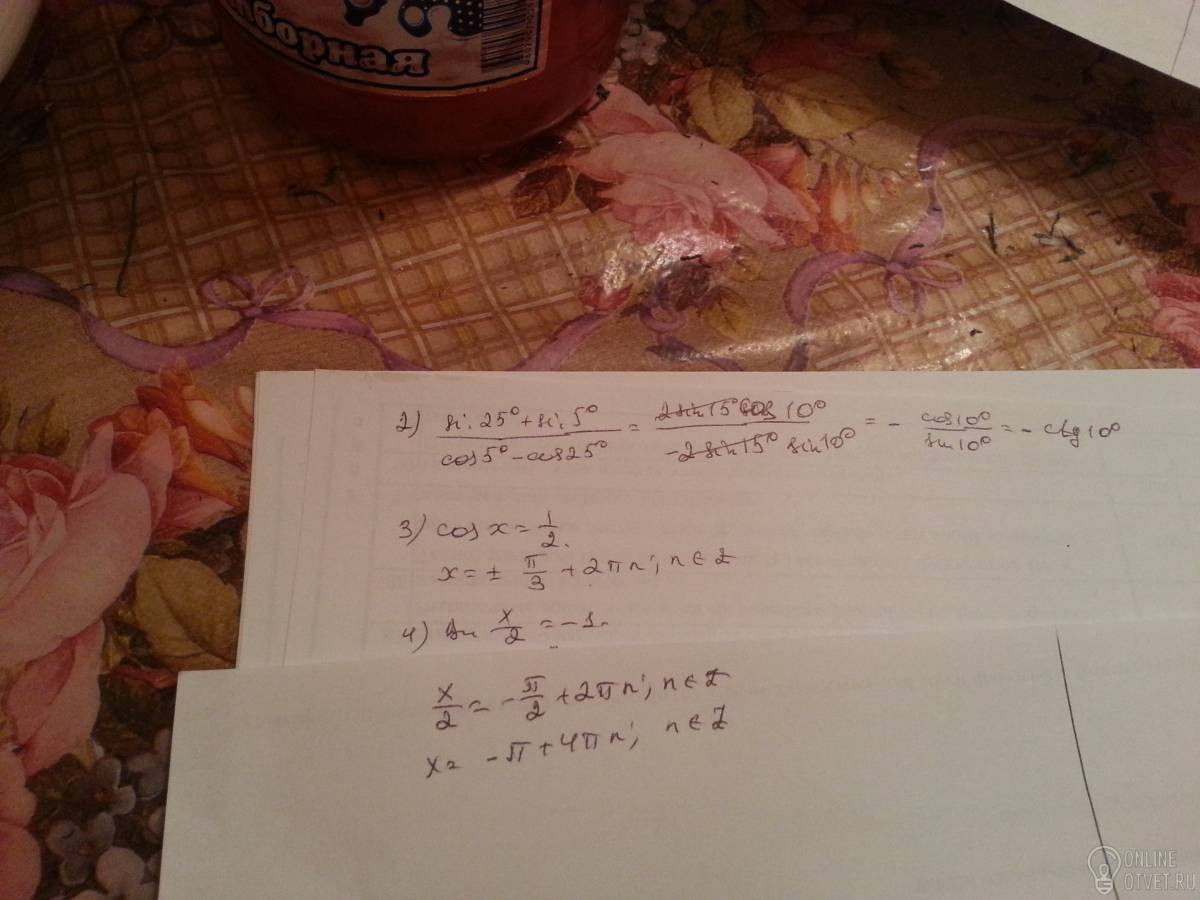 борная
2) sin 25° + sin 5° / cos 5° - cos 25° = 2 sin 15° cos 10° / -2 sin 15° sin 10° = - cos 10° / sin 10° = - ctg 10°
3) cos x = 1/2
x = ± π/3 + 2πn; n ∈ Z
4) sin x/2 = -1
x/2 = - π/2 + 2πn; n ∈ Z
x = - π + 4πn; n ∈ Z
ONLINE
OTVET.RU